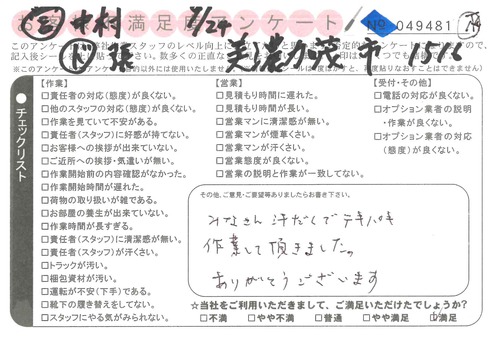 お客様満足度アンケート
No 049481
中村
8/24
美濃加茂市
1566
【作業】
□責任者の対応(態度)が良くない。
□他のスタッフの対応(態度)が良くない。
□作業を見ていて不安がある。
□責任者(スタッフ)に好感が持てない。
□お客様への挨拶が出来ていない。
□ご近所への挨拶・気遣いが無い。
□作業開始前の内容確認がなかった。
□作業開始時間が遅れた。
□荷物の取り扱いが雑である。
□お部屋の養生が出来ていない。
□作業時間が長すぎる。
□責任者(スタッフ)に清潔感が無い。
□責任者(スタッフ)が汗くさい。
□トラックが汚い。
□梱包資材が汚い。
□運転が不安(下手)である。
□靴下の履き替えをしてない。
□スタッフにやる気がみられない。
【営業】
□見積もり時間に遅れた。
□見積もり時間が長い。
□営業マンに清潔感が無い。
□営業マンが煙草くさい。
□営業マンが汗くさい。
□営業態度が良くない。
□営業の説明と作業が一致してない。
【受付・その他】
□電話の対応が良くない。
□オプション業者の説明
・作業が良くない。
□オプション業者の対応
(態度)が良くない。
チェックリスト
その他、ご意見・ご要望等ありましたらお書き下さい。
みなさん汗だくでテキパキ
作業して頂きました。
ありがとうございます
☆当社をご利用いただきまして、ご満足いただけたでしょうか?
□不満 □やや不満 □普通 □やや満足 ☑満足